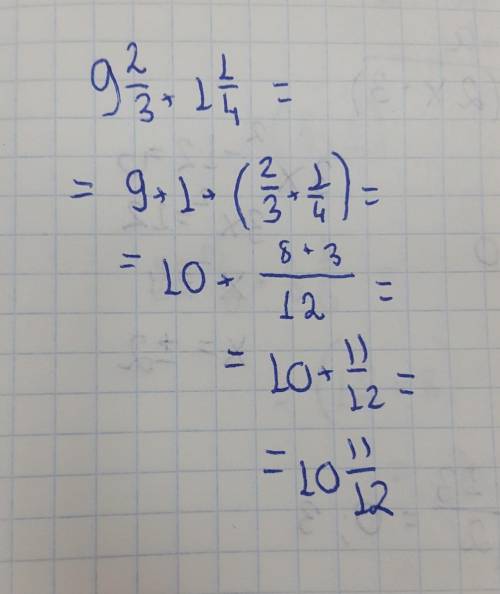 9 2/3 + 1 1/4 =
= 9 + 1 + (2/3 + 1/4) =
= 10 + (8 + 3)/12 =
= 10 + 11/12 =
= 10 11/12